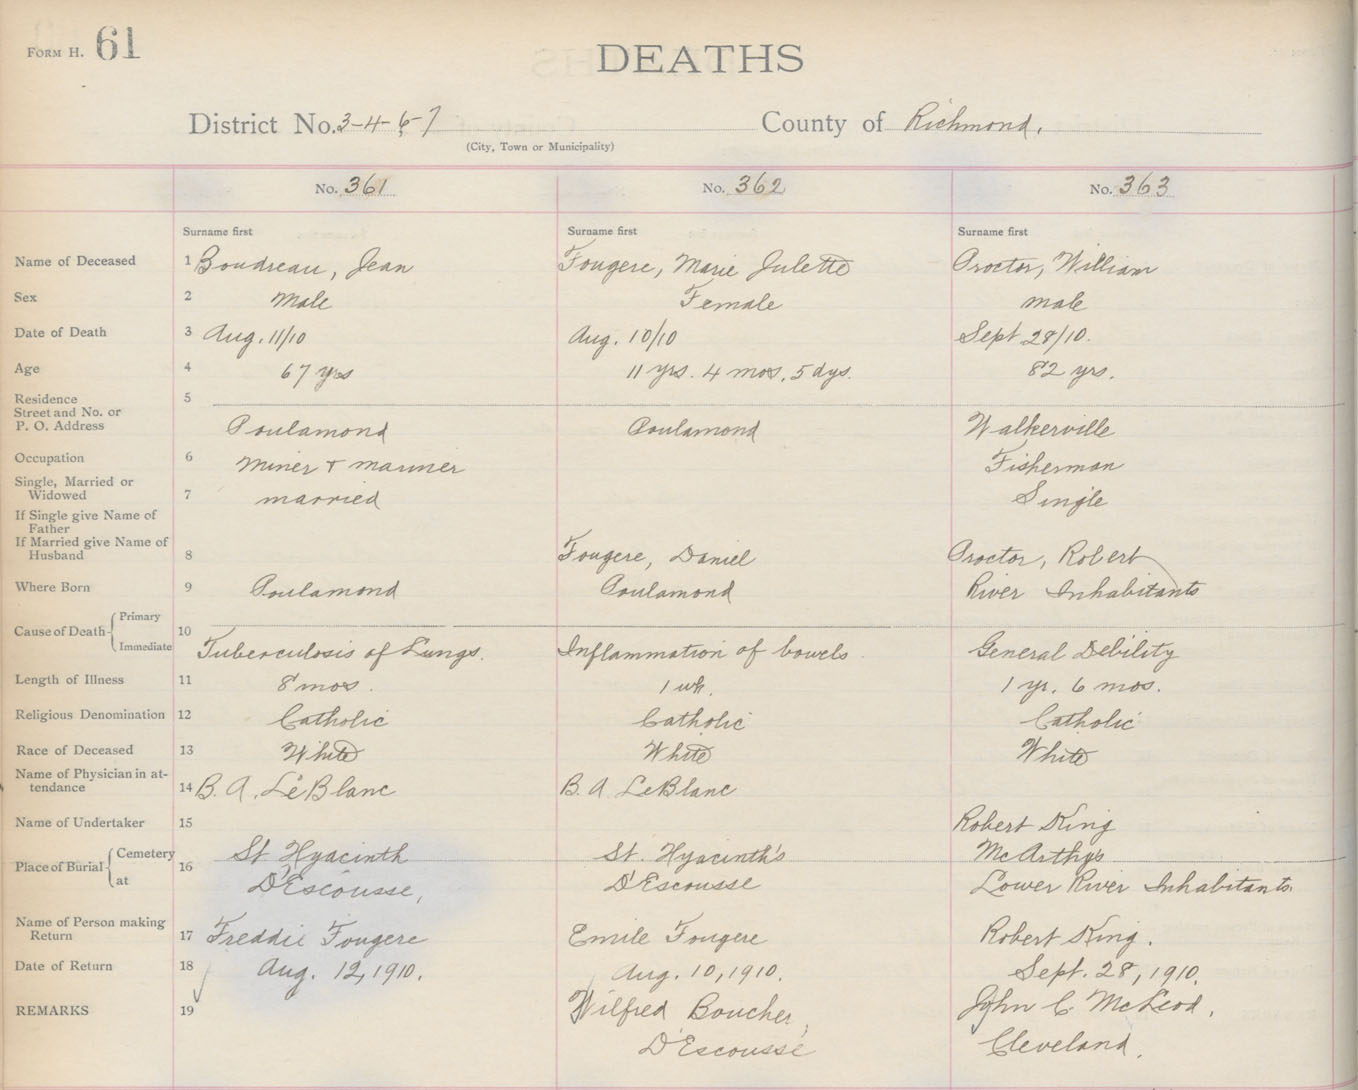 FORM H. 61
DEATHS
District No. 3-4-6-7 County of Richmond.
(City, Town or Municipality)
No. 361 No. 362 No. 363
Surname first Surname first Surname first
Name of Deceased 1 Boudreau, Jean Fougere, Marie Julette Proctor, William
Sex 2 Male Female male
Date of Death 3 Aug. 11/10 Aug. 10/10 Sept 28/10.
Age 4 67 yrs 11 yrs. 4 mos. 5 dys. 82 yrs.
Residence 5
Street and No. or
P. O. Address Poulamond Poulamond Walkerville
Occupation 6 Miner & mariner Fisherman
Single, Married or
Widowed 7 married Single
If Single give Name of
Father
If Married give Name of
Husband 8 Fougere, Daniel Proctor, Robert
Where Born 9 Poulamond Poulamond River Inhabitants
Cause of Death Primary
10
Immediate Tuberculosis of Lungs. Inflammation of bowels General Debility
Length of Illness 11 8 mos. 1 wk. 1 yr. 6 mos.
Religious Denomination 12 Catholic Catholic Catholic
Race of Deceased 13 White White White
Name of Physician in at-
tendance 14 B. A. LeBlanc B. A LeBlanc
Name of Undertaker 15 Robert King
Place of Burial Cemetery 16 St Hyacinth St. Hyacinth's McArthys
at D'Escousse, D'Escousse Lower River Inhabitants.
Name of Person making
Return 17 Freddie Fougere Emile Fougere Robert King.
Date of Return 18 Aug. 12, 1910. Aug. 10, 1910. Sept. 28, 1910.
REMARKS 19 Wilfred Boucher, John C. McLeod.
D'Escousse Cleveland.